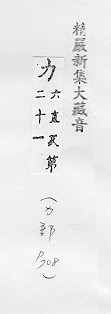 精嚴新集大藏音
力六直反第
二十一
(力部 P308)